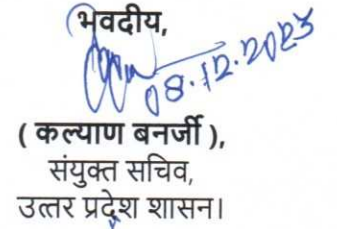 भवदीय,
08.12.2023
( कल्याण बनर्जी ),
संयुक्त सचिव,
उत्तर प्रदेश शासन।